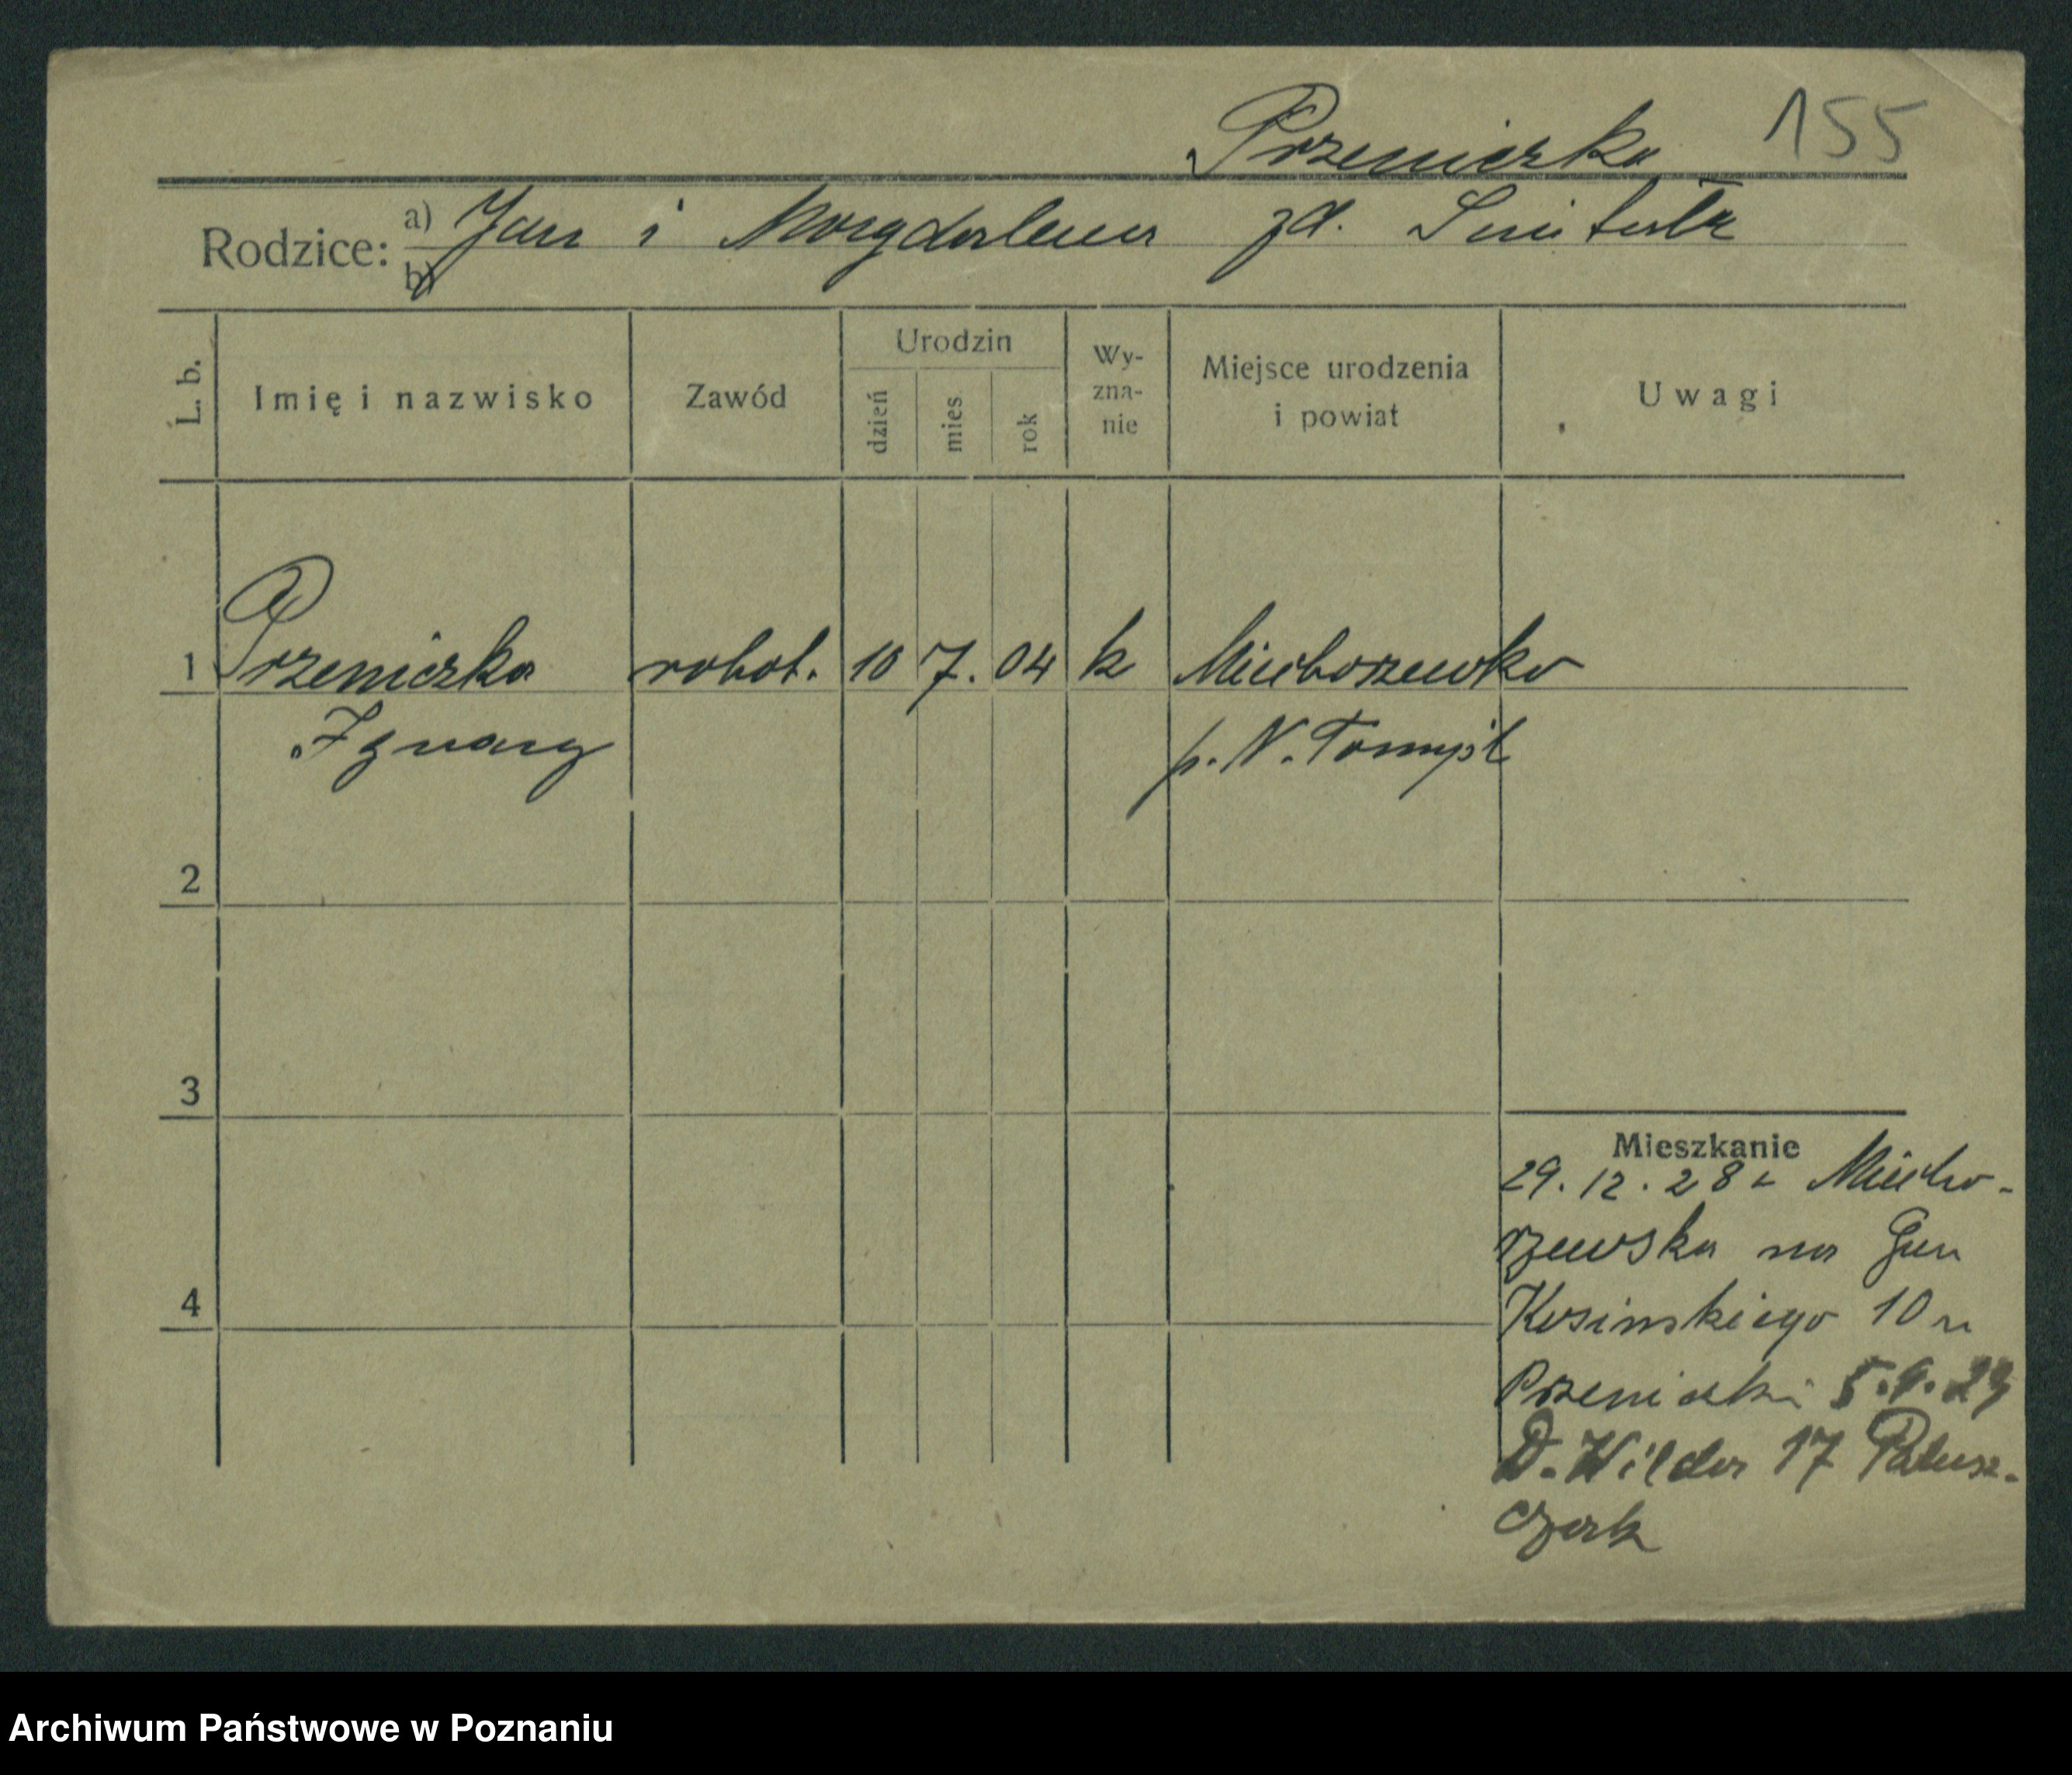 Przeniczka 155
Rodzice: a) Jan i Magdalena zd.
b)
L. b. Imię i nazwisko Zawód Urodzin dzień mies. rok Wy-zna-nie Miejsce urodzenia i powiat Uwagi
1 Przeniczka robot. 10 7. 04 k
Ignacy p. N. Tomyśl
2
3
4
Mieszkanie
29. 12. 28 z Miecho-
rzewska na Gen
Kosinskiego 10 u
Przeniczki 5.9.29
D. Wilda 17
czak
Archiwum Państwowe w Poznaniu